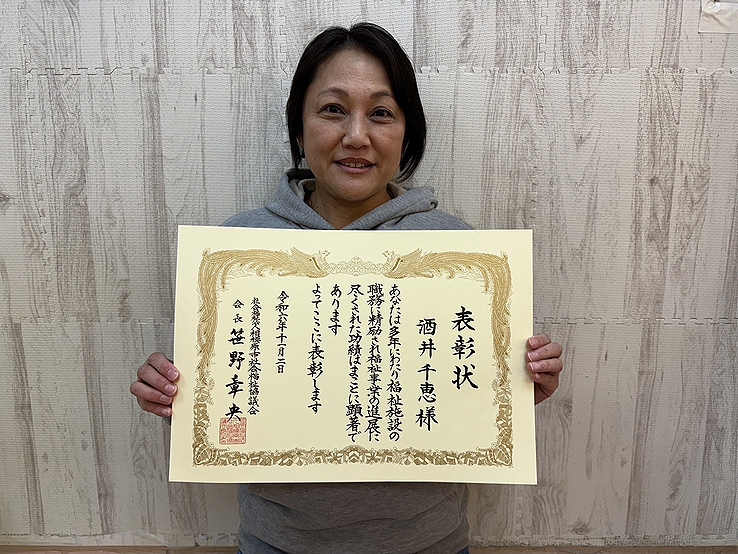 表彰状
酒井千恵様
あなたは多年にわたり福祉施設の
職務に精励され福祉事業の進展に
尽くされた功績はまことに顕著で
あります
よってここに表彰します
令和六年十一月二日
社会福祉法人相模原市社会福祉協議会
会長 笹野章央